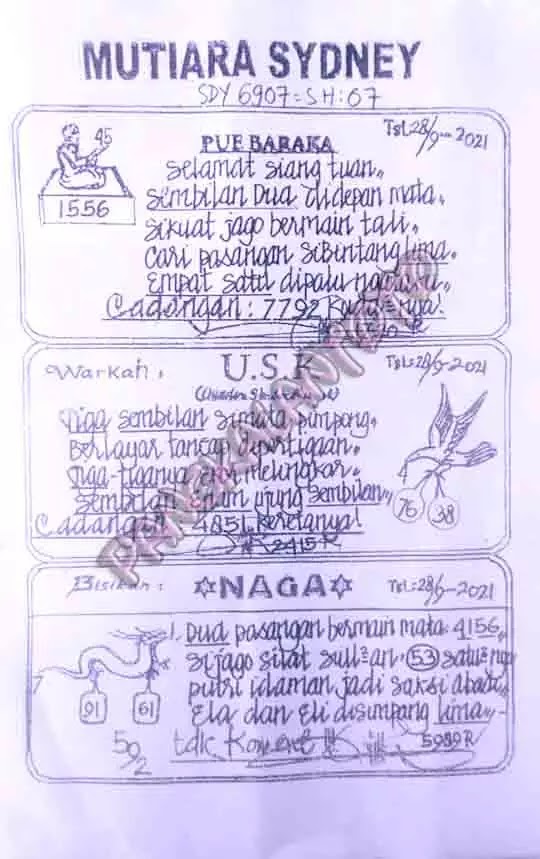 MUTIARA SYDNEY
SDY 6907 = SH: 07
45
1556
PUE BARAKA
Tgl: 28/9-2021
Selamat siang tuan,,
Sembilan Dua didepan mata.
Sikuat jago bermain tali.
Cari pasangan SiBintang lima.
Empat satu dipalu
Cadangan: 7792
Warkah:
U.S.K
Tgl: 28/9-2021
Tiga sembilan
Berlayar tancap dipertigaan.
Tiga-tiganya melingkar.
Sembilan ujung sembilan,,
Cadangan 4851 keretanya!
2415 R
76
38
Bisikan:
☆NAGA☆
Tgl: 28/9-2021
1. Dua pasangan bermain mata. 4156,,
Sijago silat 53
putri idaman jadi saksi abadi
Ela dan Eli disimpang lima,,-
91
61
592
tdk Koment
5989 R
PANGKALANTOTO